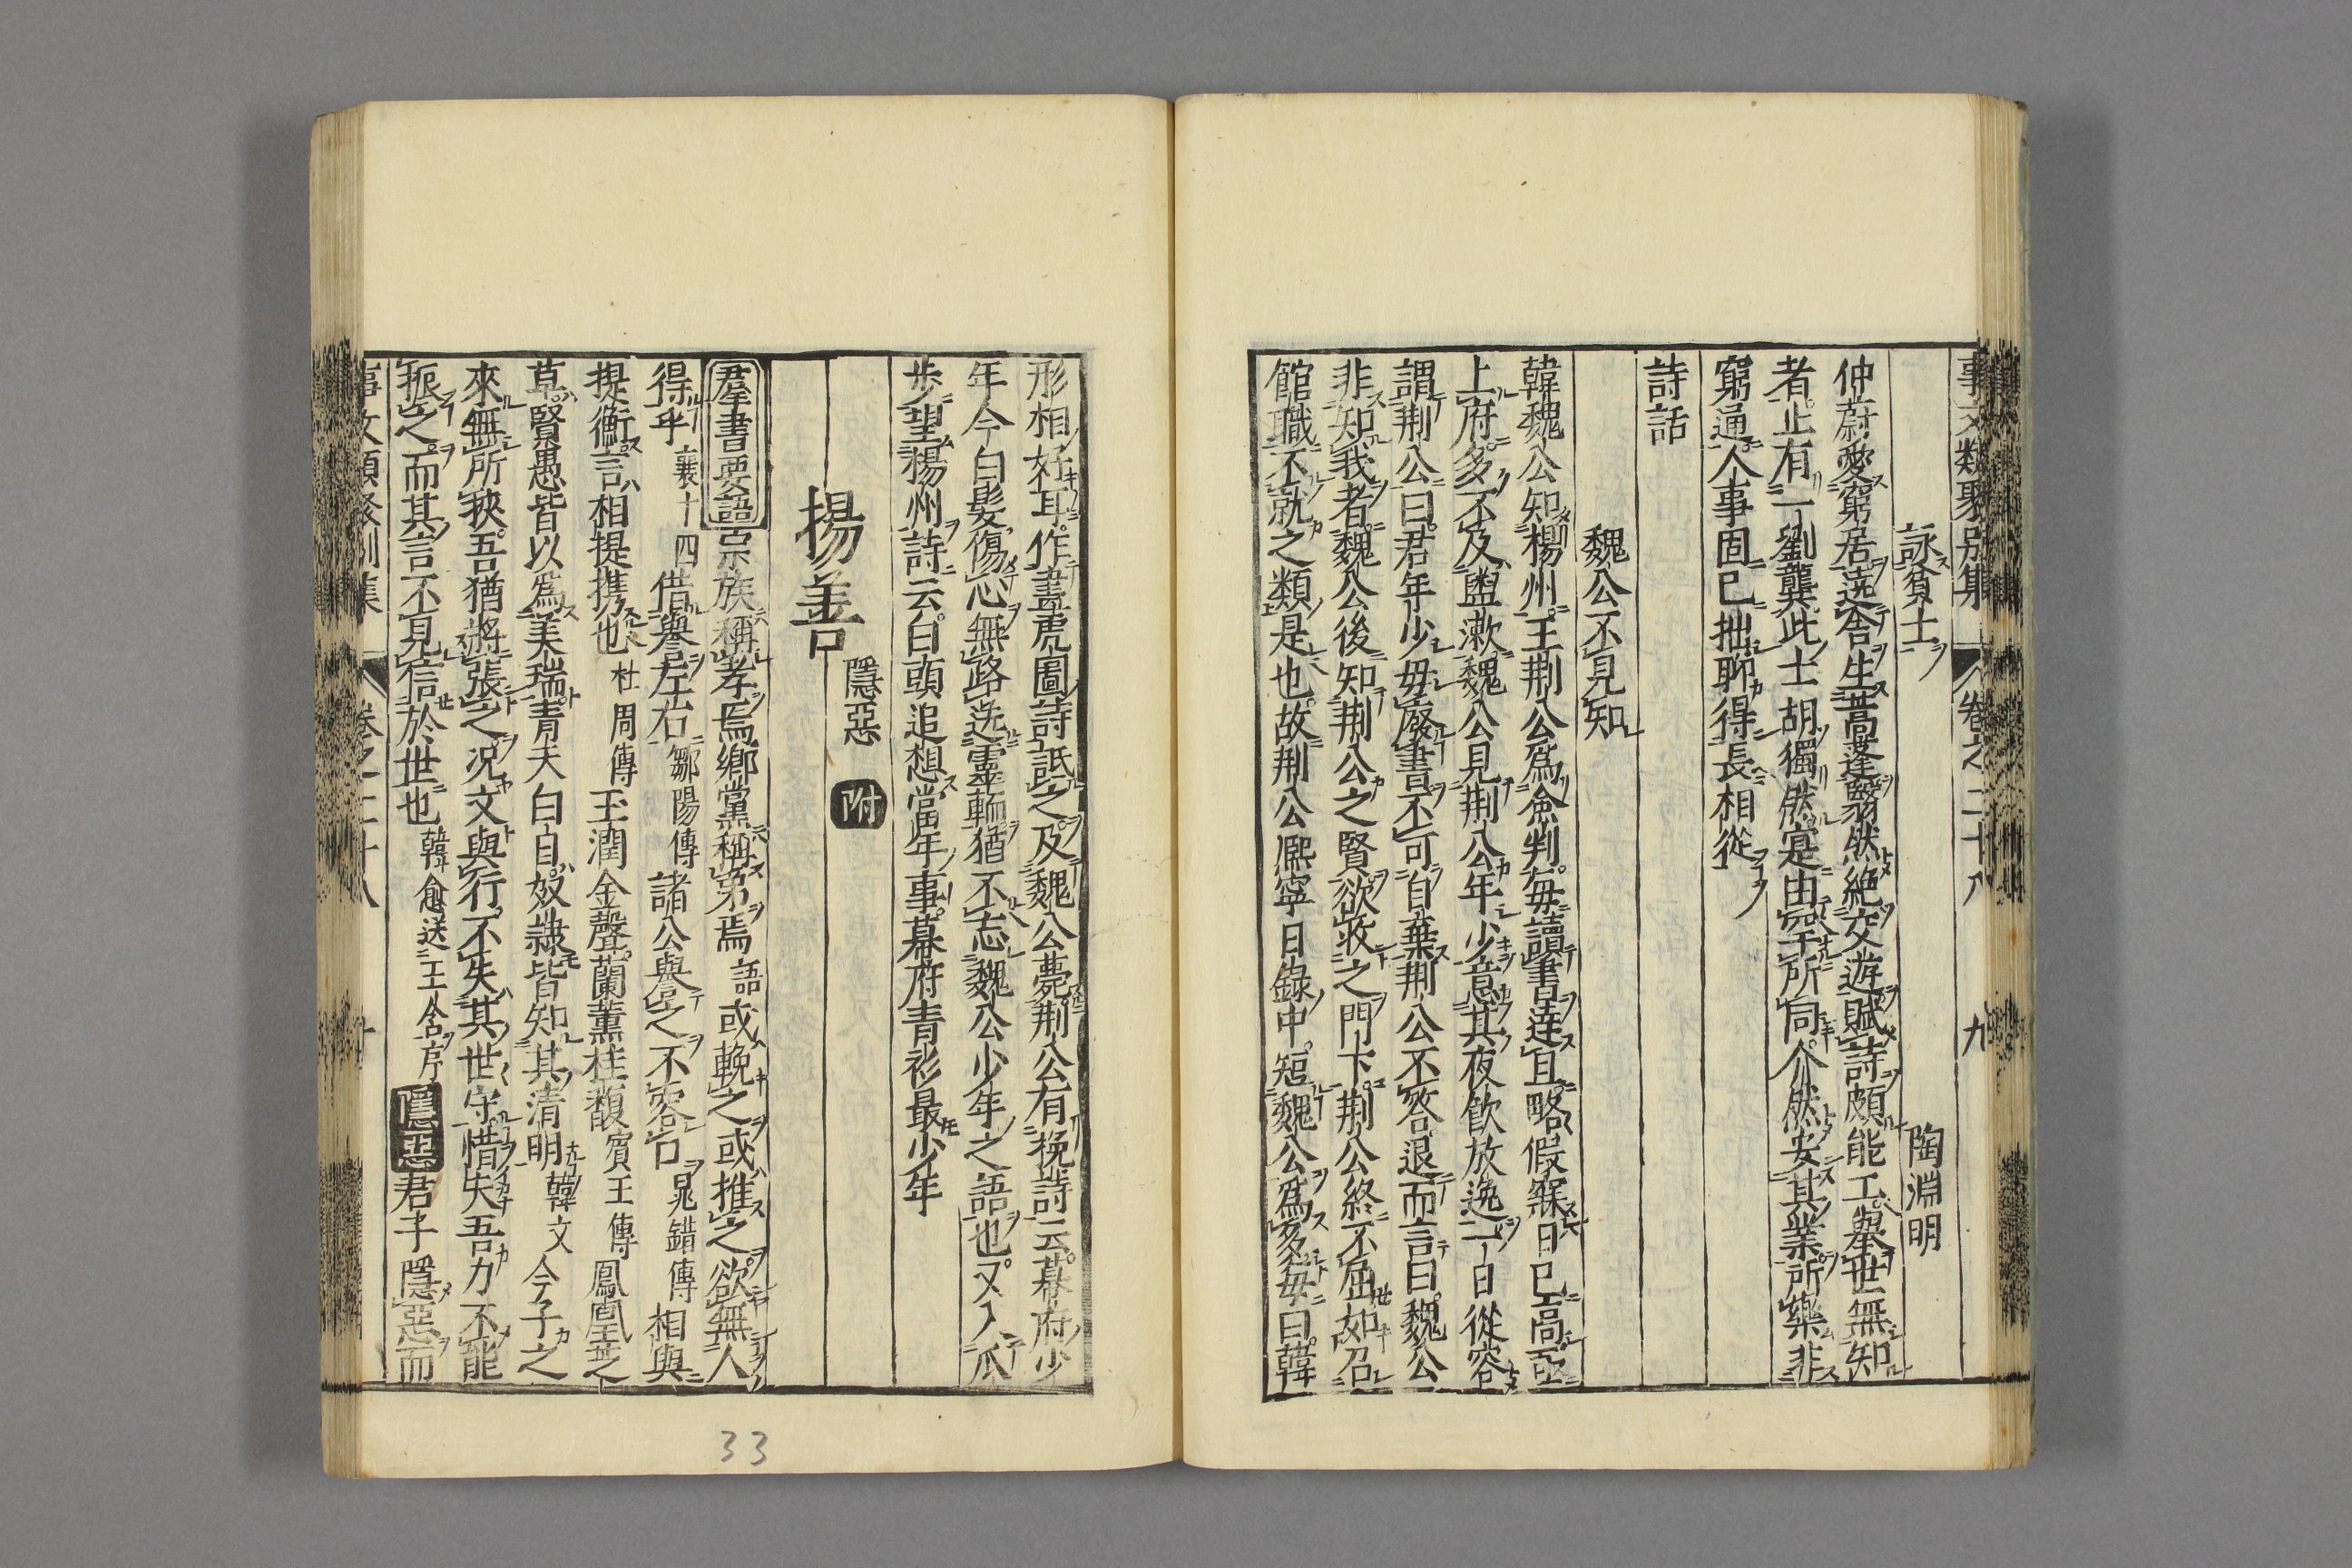 事文類聚別集 卷之二十八 九
詠貧士 陶淵明
仲蔚愛窮居遶舎生蒿蓬翳然絶交遊賦詩頗能工舉世無知
者止有一劉龔此士胡獨然寔由罕所同介然安其業所樂非
窮通人事固已拙聊得長相從
詩話
魏公不見知
韓魏公知楊州王荆公爲僉判毎讀書達旦略假寐日已高亟
上府多不及盥漱魏公見荆公年少意其夜飲放逸一日從容
謂荆公曰君年少毋廢書不可自棄荆公不答退而言曰魏公
非知我者魏公後知荆公之賢欲收之門下荆公終不屈如召
館職不就之類是也故荆公熈寧日錄中短魏公爲多毎曰韓
形相好耳作畫虎圖詩詆之及魏公薨荆公有挽詩云幕府少
年今白髮傷心無路送靈輀猶不忘魏公少年之語也又入瓜
步望楊州詩云白頭追想當年事幕府青衫最少年
隱惡 附
揚善
羣書要語 宗族稱孝焉鄉黨稱弟焉 語 或輓之或推之欲無人
得乎 襄十四 借譽左右 鄒陽傳 諸公譽之不容口 晁錯傳 相與
提衡言相提携也 杜周傳 玉潤金聲蘭薫桂馥 賓王傳 鳳凰芝
草賢愚皆以爲美瑞青天白日奴隸皆知其清明 韓文 今子之
來無所挾吾猶將張之况文與行不失其世守惜失吾力不能
振之而其言不見信於世也 韓愈送王含序 隱惡 君子隱惡而
事文類聚別集 卷之二十八 十
33